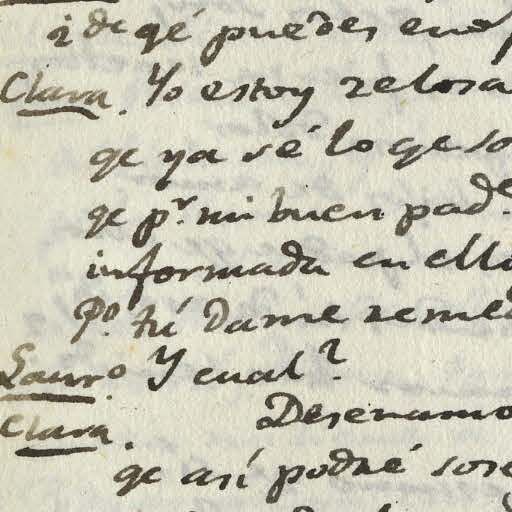 ¿de qé puedes eno
Clara. Yo estoy zelosa
qe ya sé lo qe so
qe pr. mi buen pade.
informada en ello
Po. tú dame reme
Lauro. Y cual?
Clara. Desenamo
qe así podré sose